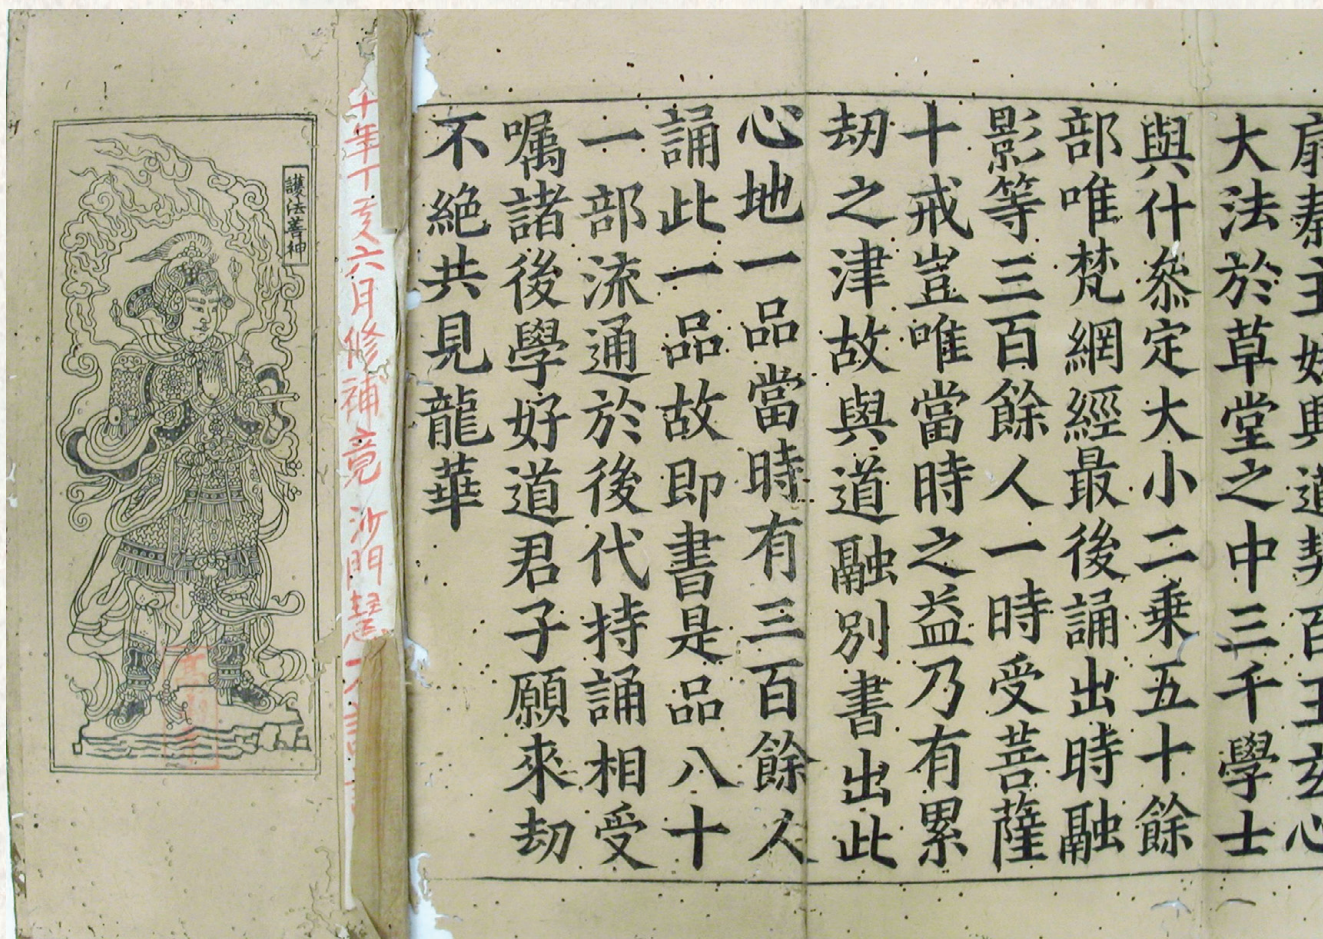 大法於草堂之中三千學士
與什叅定大小二乗五十餘
部唯梵網經最後誦出時融
影等三百餘人一時受菩薩
十戒豈唯當時之益乃有累
劫之津故與道融別書出此
心地一品當時有三百餘人
誦此一品故即書是品八十
一部流通於後代持誦相受
嘱諸後學好道君子願來劫
不絕共見龍華
十年丁亥六月修補竟 沙門慧
護法善神